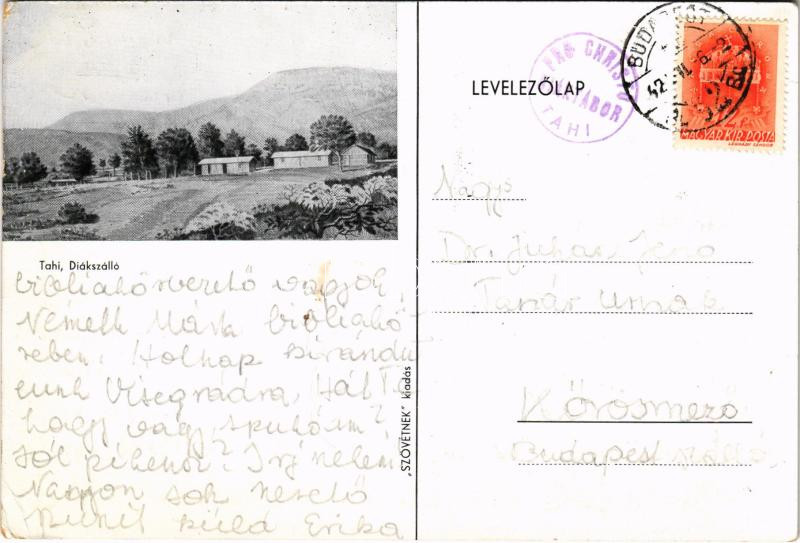 Tahi, Diákszálló
bibliakörvezető vagyok,
Németh Márta bibliakö-
rében. Holnap kirándu-
lunk Visegrádra, Hát Te
hogy vagy,
Jól pihensz? Írj nekem
Nagyon sok szerető
küld Erika
"SZÖVÉTNEK" kiadás
LEVELEZŐLAP
PRO CHRISTO
TÁBOR
TAHI
BUDAPEST
MAGYAR KIR. POSTA
LÉGRÁDY SÁNDOR
Nagys.
Dr. Juhász Jenő
Tanár úrnak
Kőrösmező
Budapest szálló